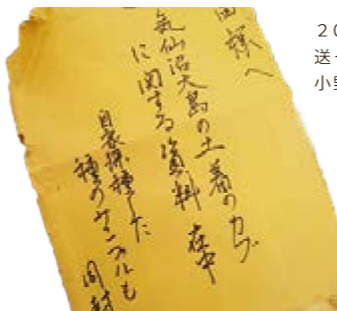 様へ
氣仙沼大島の土着のカブ
に関する資料 在中
自家採種した
種のサンプルも 同封
２０
送
小